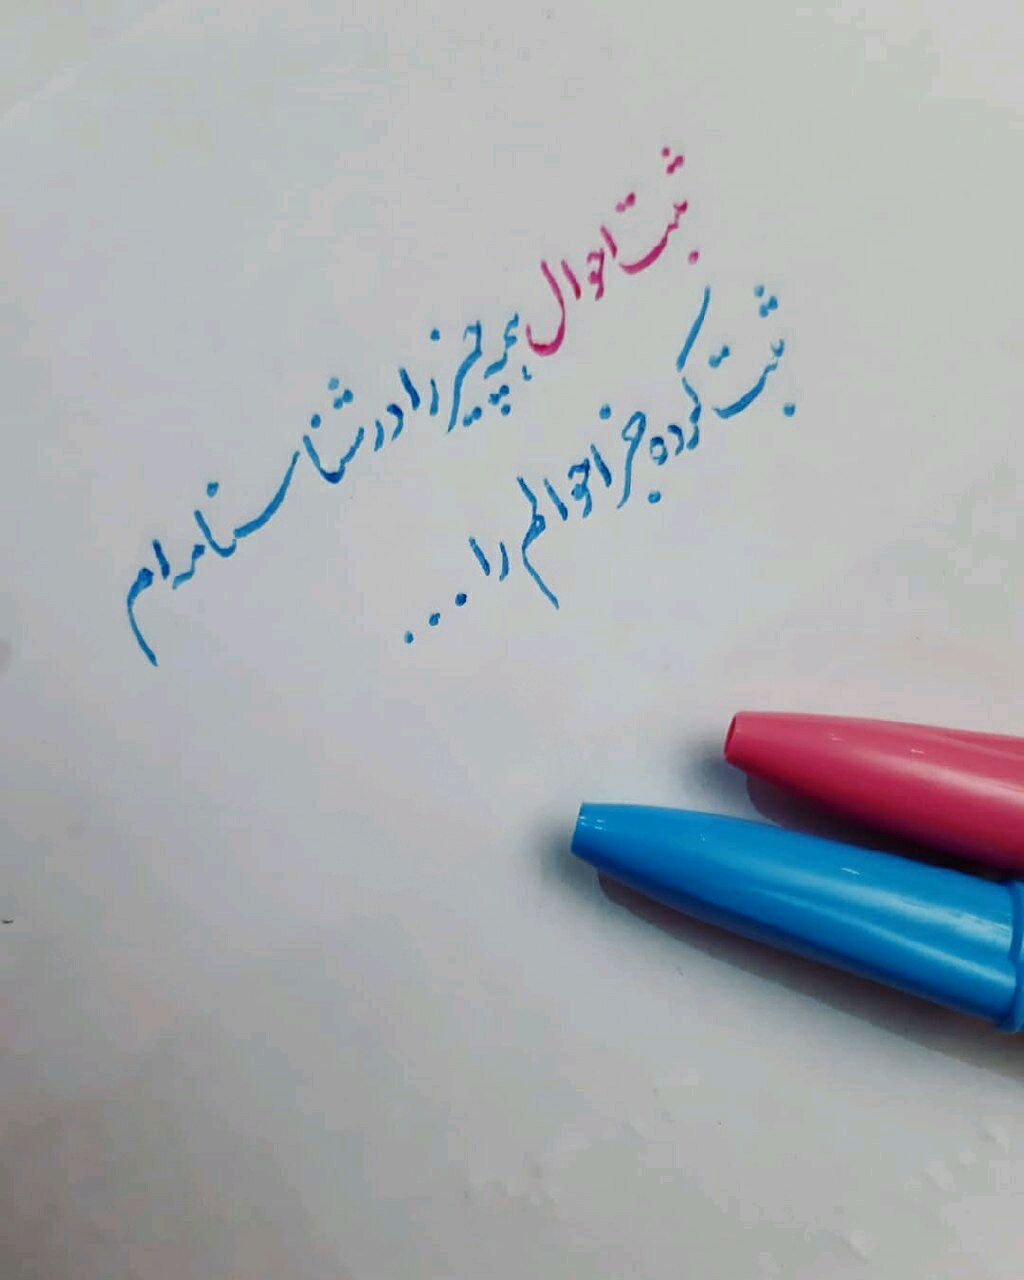 ثبت احوال همه چیز را در شناسنامه ام
ثبت کرده جز احوالم را...